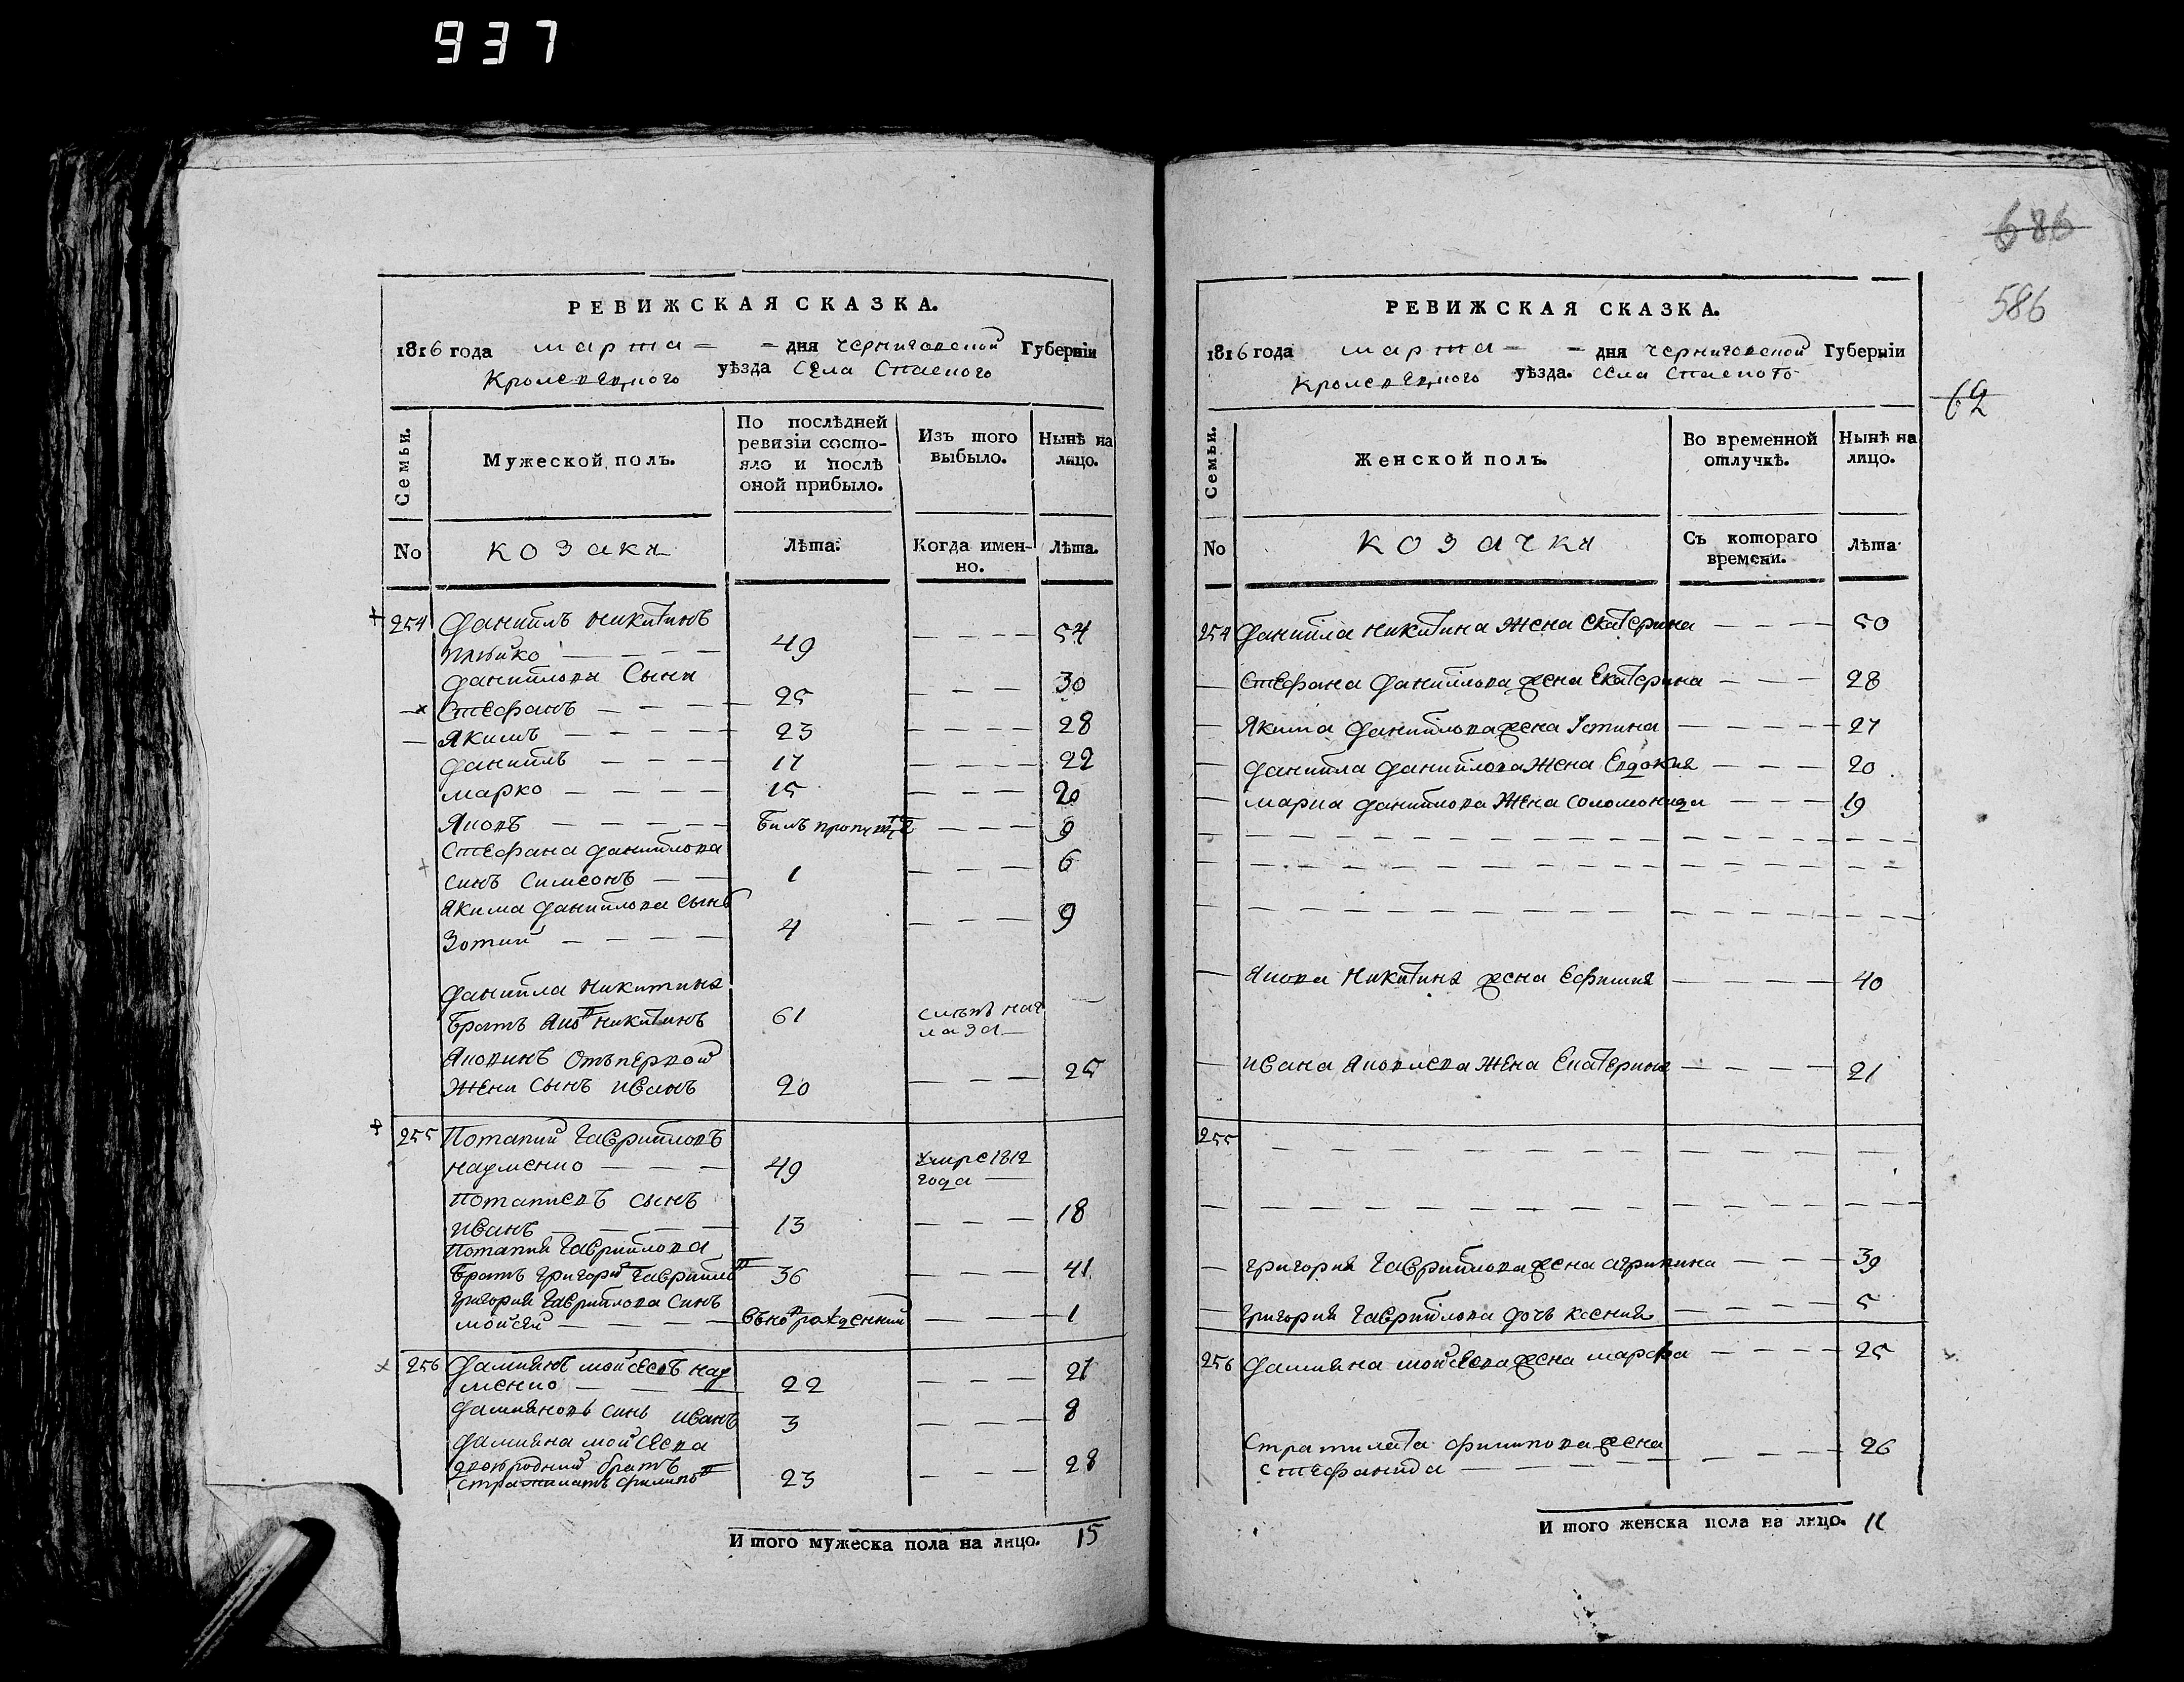 937
РЕВИЖСКАЯ СКАЗКА.
1816 года марта = = дня черниговской Губерніи
Кролевецкого уѣзда села Спаского
Семьи.
Мужеской полъ.
По послѣдней ревизіи состо-
яло и послѣ оной прибыло.
Изъ того выбыло.
Нынѣ на лицо.
No козаки Лѣта. Когда имен-
но. Лѣта.
254 Даниилъ Никитинъ
49 — — — 54
Даниловы Сыны
Стефанъ — — — 25 — — — 30
Якимъ — — — 23 — — — 28
Даниилъ — — — 17 — — — 22
Марко — — — 15 — — — 20
Яковъ — — — — 9
Стефана Данилова
синъ Симеонъ — — 1 — — — 6
Якима Данилова сынъ
Зотий — — — 4 — — — 9
Данила Никитина
братъ Яковъ Никитинъ 61
Яковинъ Отъ первой
жены сынъ Иванъ 20 — — — 25
255 Потапий Гавриловъ
Науменко — — — 49 Умре 1812
года —
Потапиевъ сынъ
Иванъ — — — 13 — — — 18
Потапия Гаврилова
братъ Григорий Гавриловъ 36 — — — 41
Григория Гаврилова синъ
Мойсей — — — въновъ рожденний — — — 1
256 Дамиянъ Мойсеевъ Нау
менко — — — 22 — — — 27
Дамияновъ синъ Иванъ 3 — — — 8
Дамияна Мойсеева
двоюродний братъ
Стратилатъ Филиповъ 23 — — — 28
И того мужеска пола на лицо. 15
686
586
62
РЕВИЖСКАЯ СКАЗКА.
1816 года марта = = дня черниговской Губерніи
Кролевецкого уѣзда. села Спаского
Семьи.
Женской полъ.
Во временной отлучкѣ.
Нынѣ на лицо.
No козачки Съ котораго
времени. Лѣта
254 Данила Никитина жена Екатерина — — — 50
— Стефана Данилова жена Екатерина — — — 28
— Якима Данилова жена Устина — — — — 27
— Данила Данилова жена Евдокия — — — 20
— Марка Данилова жена Соломонида — — — 19
— Якова Никитина жена Ефимия — — — — 40
— Ивана Яковлева жена Екатерина — — — — 21
255 — — — — — — —
— Григория Гаврилова жена Агрипина — — — 39
— Григория Гаврилова дочь Ксения — — — — 5
256 Дамияна Мойсеева жена Марфа — — — — 25
Стратилата Филипова жена
Стефанида — — — — — — 26
И того женска пола на лицо. 11